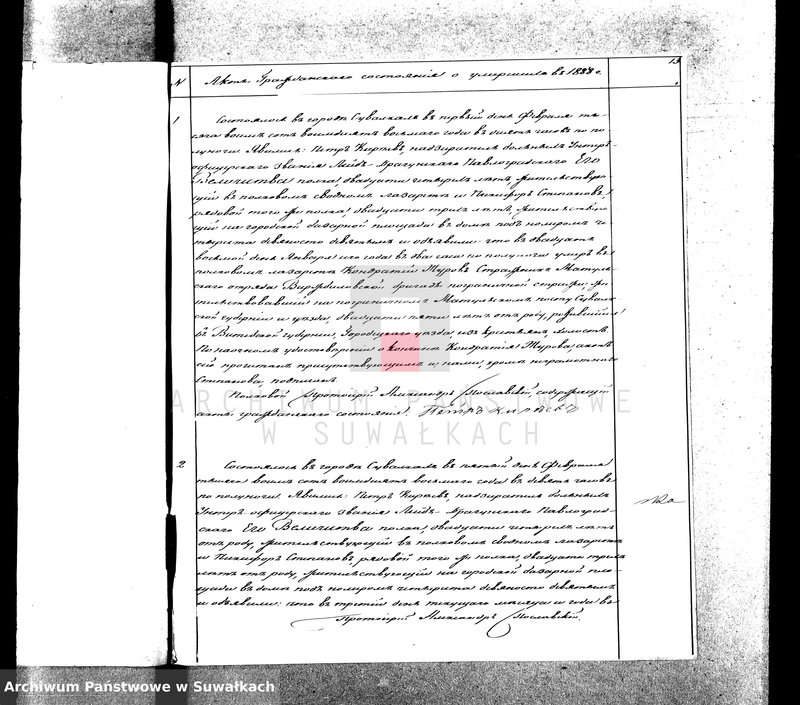 13
N Актъ Гражданскаго состоянія о умершихъ въ 1888 г.
1
Состоялось въ городѣ Сувалкахъ въ первый день Февраля ты-
сяча восемь сотъ восемьдесятъ восьмаго года въ девять часовъ по по-
луночи. Явились: Петръ Кирѣевъ, надзиратель больныхъ Унтеръ-
офицерскаго званія Лейбъ-Драгунскаго Павлоградскаго Его
Величества полка, двадцати четырехъ лѣтъ, жительствую-
щій въ полковомъ сводномъ лазаретѣ и Никифоръ Степановъ,
рядовой того же полка, двадцати трехъ лѣтъ, жительствую-
щій на городской базарной площади въ домѣ подъ номеромъ че-
тыреста девяносто девятымъ и объявили: что въ двадцать
восьмой день Января сего года въ два часа по полуночи умеръ въ
полковомъ лазаретѣ Кондратій Журовъ Стражникъ
отряда бригады пограничной стражи, жи-
тельствовавшій на пограничномъ посту Сувалк-
ской губерніи и уѣзда, двадцати пяти лѣтъ отъ роду, родившійся
въ Витебской губерніи, Городецкаго уѣзда изъ крестьянъ, холостъ.
По наочномъ удостовѣреніи о кончинѣ Кондратія Журова, актъ
сей прочитанъ присутствующимъ и нами, кромѣ неграмотнаго
Степанова, подписанъ.
Полковой Протоіерей Александръ Пославскій, содержащій
акты гражданскаго состоянія. Петръ Кирѣевъ
2
Состоялось въ городѣ Сувалкахъ въ пятый день Февраля
тысяча восемь сотъ восемьдесятъ восьмаго года въ девять часовъ
по полуночи. Явились: Петръ Кирѣевъ, надзиратель больныхъ
Унтеръ-офицерскаго званія Лейбъ-Драгунскаго Павлоград-
скаго Его Величества полка, двадцати четырехъ лѣтъ
отъ роду, жительствующій въ полковомъ сводномъ лазаретѣ
и Никифоръ Степановъ, рядовой того же полка, двадцати трехъ
лѣтъ отъ роду, жительствующій на городской базарной пло-
щади въ домѣ подъ номеромъ четыреста девяносто девятымъ
и объявили: что въ третій день текущаго мѣсяца и года въ
Протоіерей Александръ Пославскій.
ARCHIWUM PAŃSTWOWE
W SUWAŁKACH
Archiwum Państwowe w Suwałkach